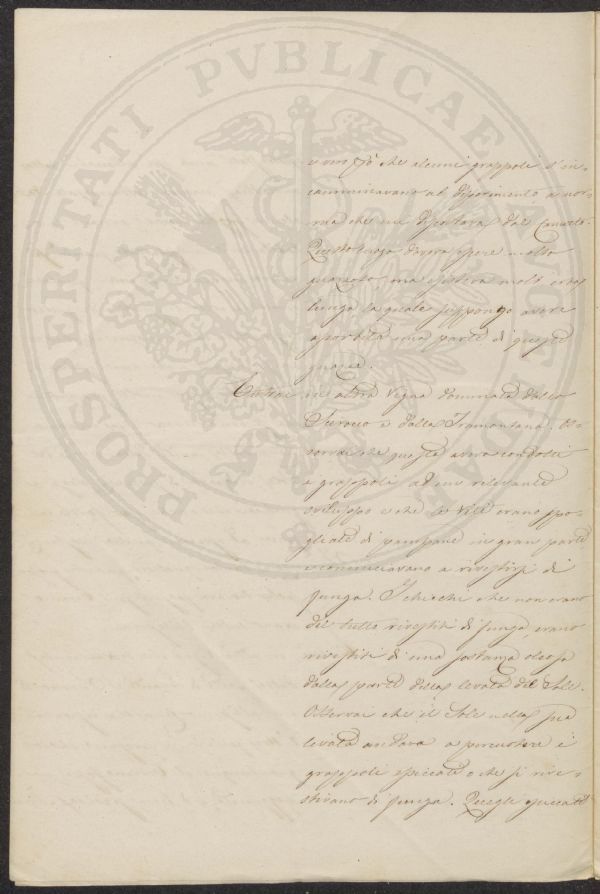 PROSPERITATI PVBLICAE AVGENDAE
e vero che alcuni grappoli s'in-
camminavano al deperimento a nor-
ma che ne dipendeva dal Canetto.
Questo luogo doveva essere molto
ma esisteva molt' erba
lunga la quale suppongo avere
assorbita una parte di queste
Entrai in altra Vigna dominata dallo
Scirocco e dalla Tramontana. Os-
servai che questa aveva condotti
i grappoli ad un rilevante
sviluppo e che le Viti erano spo-
gliate di pampane in gran parte
e cominciavano a rivestirsi di
funga. I chicchi che non erano
del tutto rivestiti di funga, erano
rivestiti di una sostanza oleosa
dalla parte della levata del Sole.
Osservai che il Sole nella sua
levata andava a percuotere i
grappoli spiccati e che si rive-
stivano di funga. Quegli spiccati